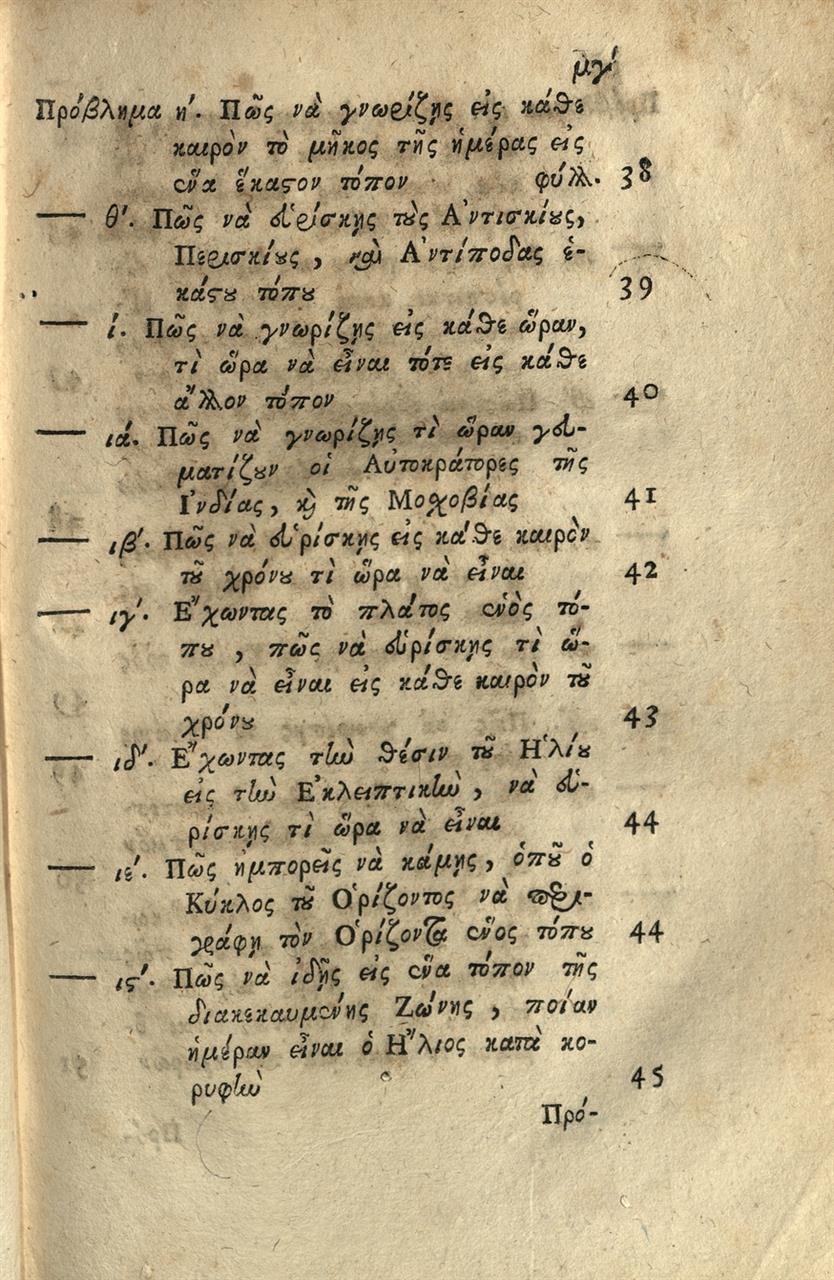 μγ'
Πρόβλημα η'. Πῶς νὰ γνωρίζῃς εἰς κάθε
καιρὸν τὸ μῆκος τῆς ἡμέρας εἰς
ἕνα ἕκαστον τόπον φύλλ. 38
— θ'. Πῶς νὰ εὑρίσκῃς τοὺς Ἀντισκίους,
Περισκίους, καὶ Ἀντίποδας ἑ-
κάστου τόπου 39
— ί. Πῶς νὰ γνωρίζῃς εἰς κάθε ὥραν,
τὶ ὥρα νὰ εἶναι τότε εἰς κάθε
ἄλλον τόπον 40
— ιά. Πῶς νὰ γνωρίζῃς τὶ ὥραν γευ-
ματίζουν οἱ Αὐτοκράτορες τῆς
Ἰνδίας, καὶ τῆς Μοσχοβίας 41
— ιβ'. Πῶς νὰ εὑρίσκῃς εἰς κάθε καιρὸν
τοῦ χρόνου τὶ ὥρα νὰ εἶναι 42
— ιγ'. Ἔχωντας τὸ πλάτος ἑνὸς τό-
που, πῶς νὰ εὑρίσκῃς τὶ ὥ-
ρα νὰ εἶναι εἰς κάθε καιρὸν τοῦ
χρόνου 43
— ιδ'. Ἔχωντας τὴν θέσιν τοῦ Ἡλίου
εἰς τὴν Ἐκλειπτικὴν, νὰ εὑ-
ρίσκῃς τὶ ὥρα νὰ εἶναι 44
— ιε'. Πῶς ἠμπορεῖς νὰ κάμῃς, ὁποῦ ὁ
Κύκλος τοῦ Ὁρίζοντος νὰ περι-
γράφῃ τὸν Ὁρίζοντα ἕνος τόπου 44
— ις'. Πῶς νὰ ἰδῇς εἰς ἕνα τόπον τῆς
διακεκαυμένης Ζώνης, ποίαν
ἡμέραν εἶναι ὁ Ἥλιος κατὰ κο-
ρυφὴν 45
Πρό-